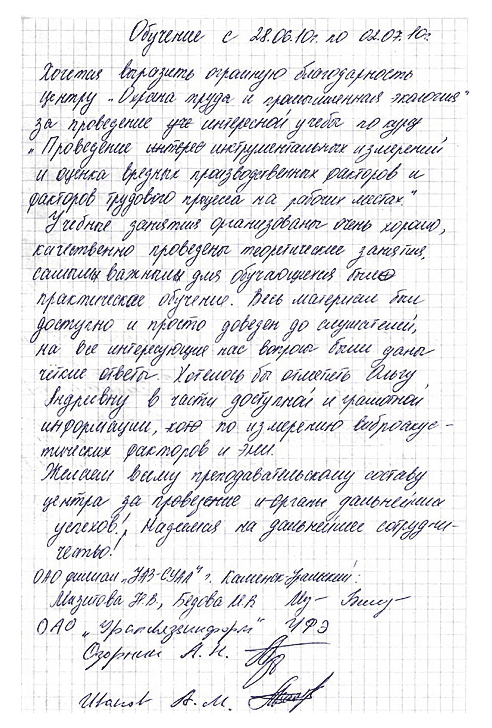 Обучение с 28.06.10г. по 02.07.10г.
Хочется выразить огромную благодарность
центру „Охрана труда и промышленная экология"
за проведение интересной учебы по курсу
„Проведение инструментальных измерений
и оценка вредных производственных факторов и
факторов трудового процесса на рабочих местах."
Учебные занятия организованы очень хорошо,
качественно проведены теоретические занятия,
самыми важными для обучающихся было
практическое обучение. Весь материал был
доступно и просто доведен до слушателей,
на все интересующие нас вопросы были даны
четкие ответы. Хотелось бы отметить Ольгу
Андреевну в части доступной и грамотной
информации, по измерению виброакус-
тических факторов и эми.
Желаем всему преподавательскому составу
центра дальнейших
успехов! Надеемся на дальнейшее сотрудни-
чество!
ОАО филиал „УАЗ-СУАЛ" г. Каменск-Уральский:
Мазитова Н.В,
ОАО „Уралсвязьинформ"
А. Н.
Иванов А. М.